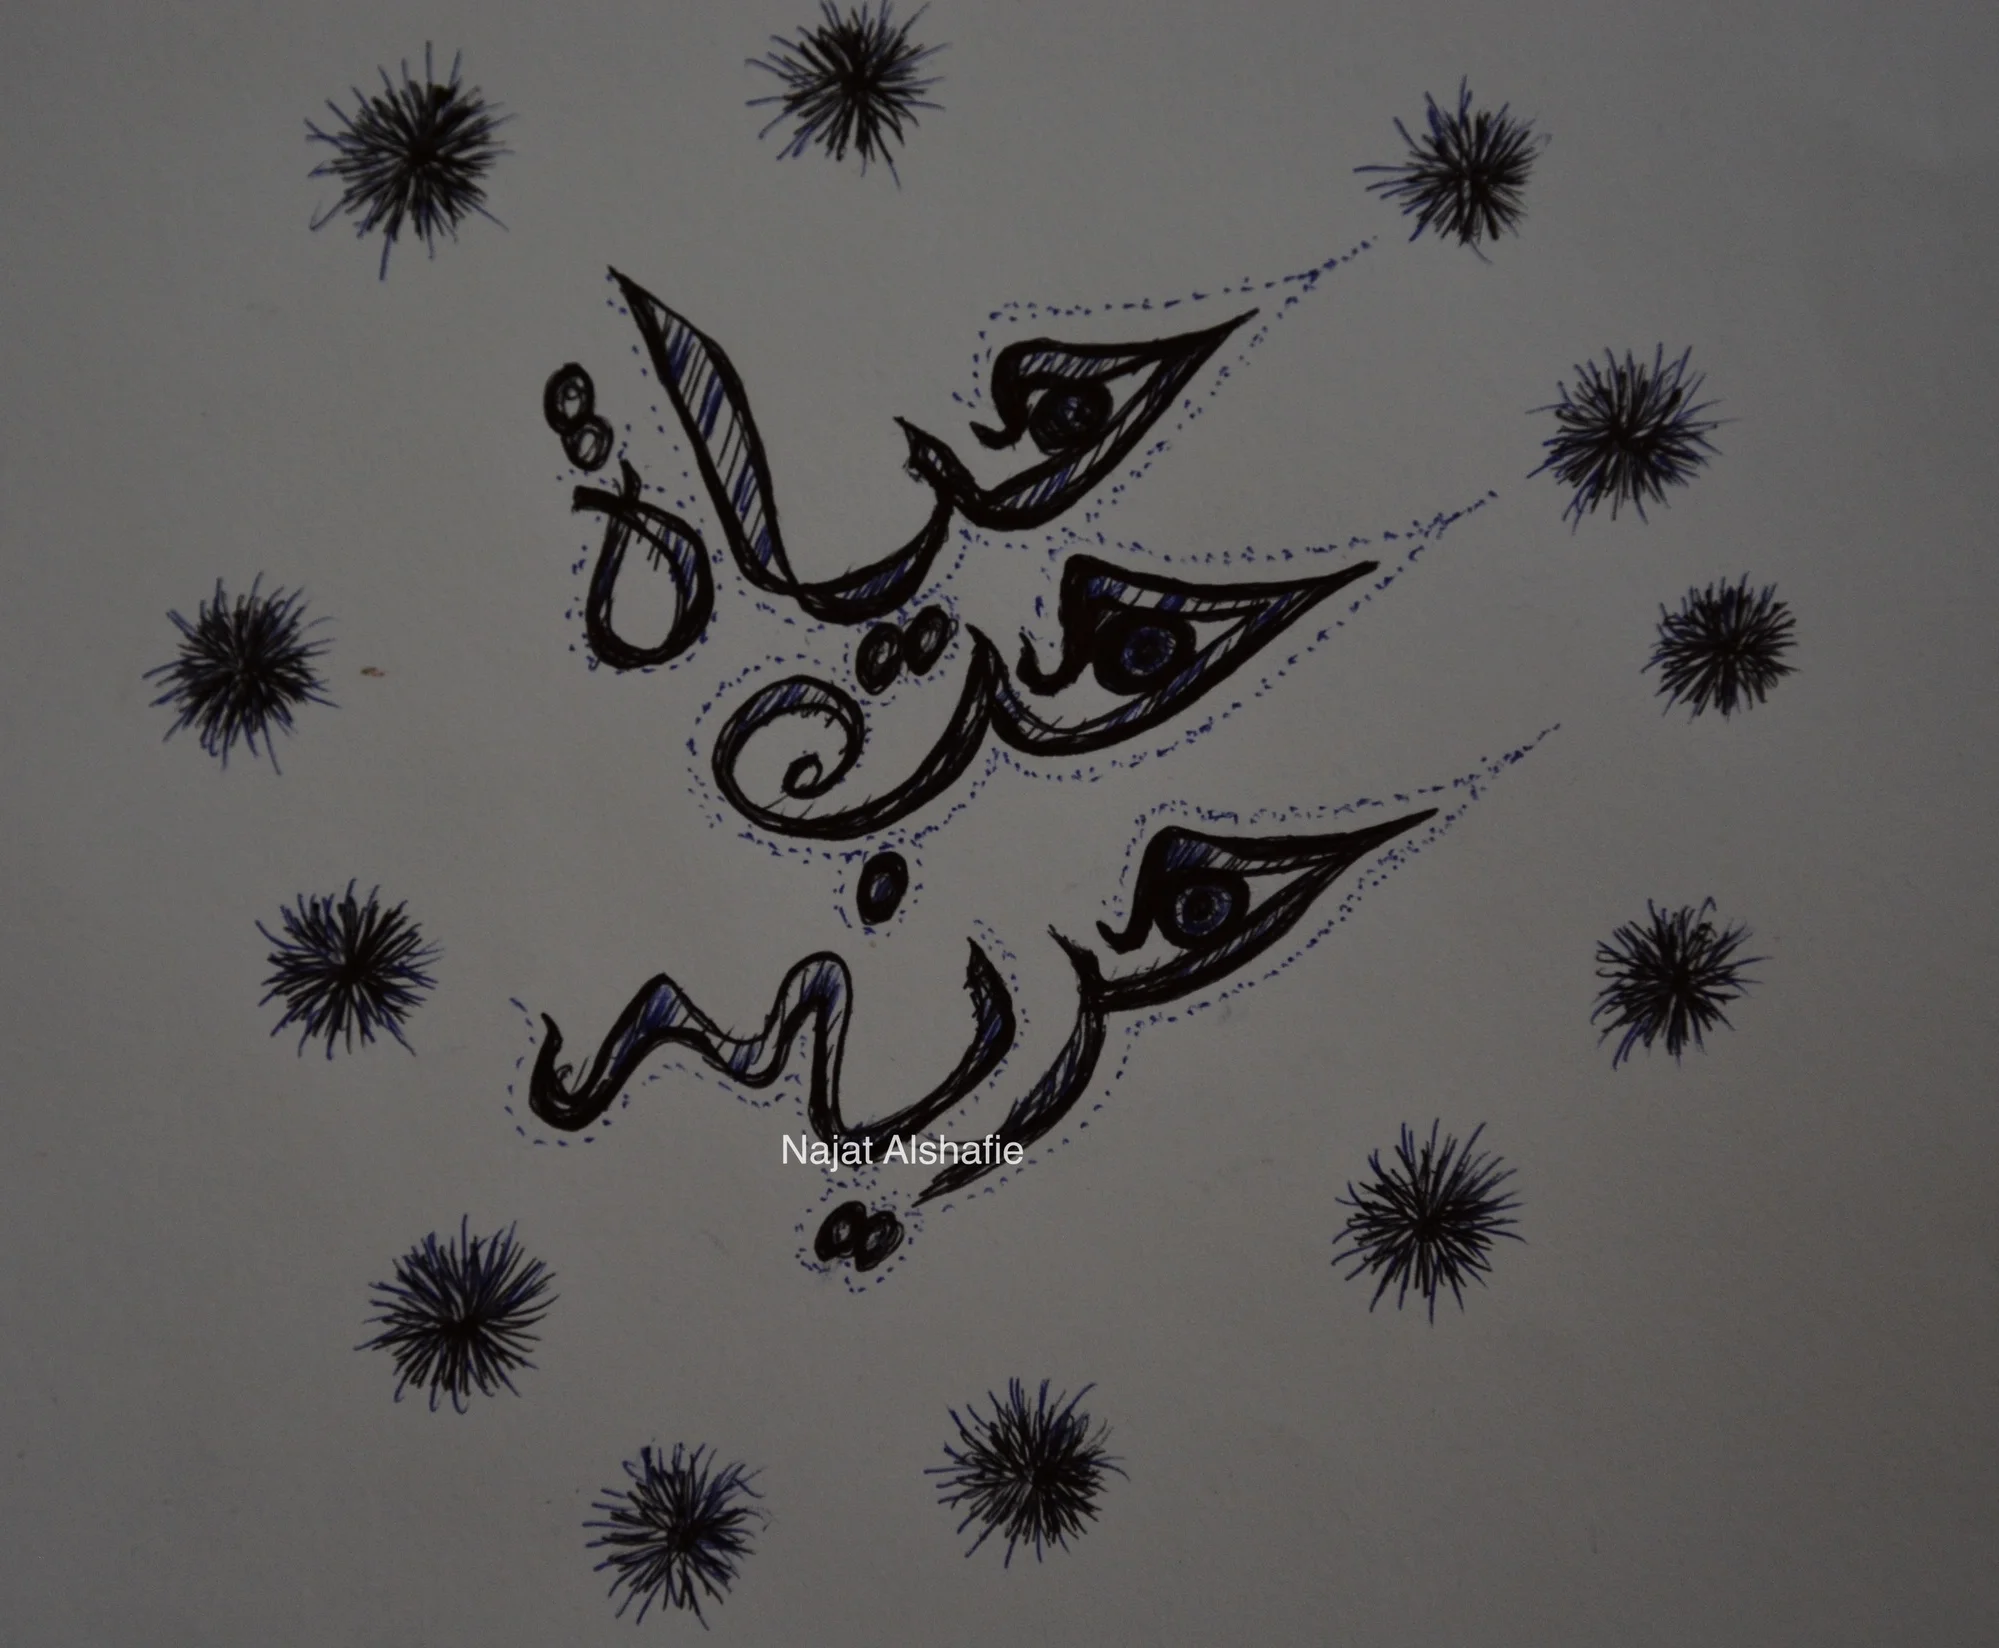 حياة
حب
حريه
Najat Alshafie